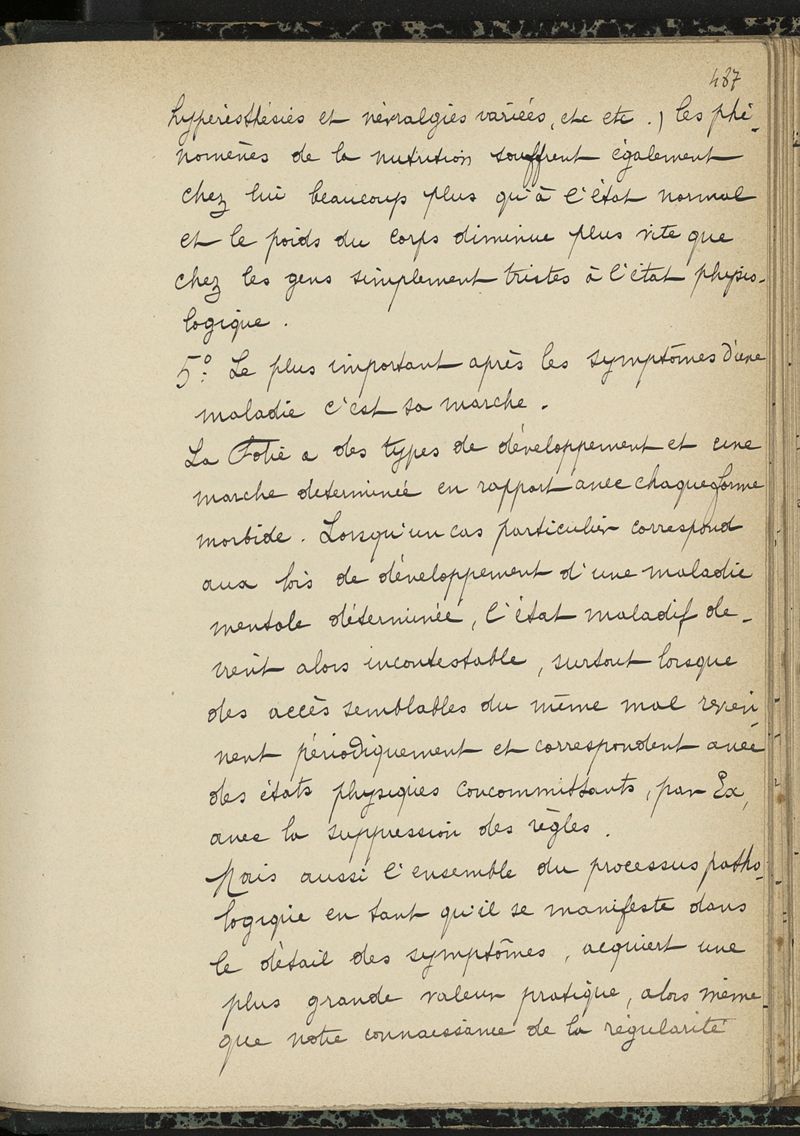 487
hyperesthésies et névralgies variées, etc etc .) les phé-
nomènes de la nutrition souffrent également
chez lui beaucoup plus qu'à l'état normal
et le poids du corps diminue plus vite que
chez les gens simplement tristes à l'état physio-
logique .
5°: Le plus important après les symptômes d'une
maladie c'est sa marche .
La Folie a des types de développement et une
marche determinée en rapport avec chaque forme
morbide . Lorsqu'un cas particulier correspond
aux lois de développement d'une maladie
mentale déterminée, l'état maladif de-
vient alors incontestable, surtout lorsque
des accès semblables du même mal revien-
nent périodiquement et correspondent avec
des états physiques concommittants, par Ex,
avec la suppression des règles .
Mais aussi l'ensemble du processus patho-
logique en tant qu'il se manifeste dans
le détail des symptômes, acquiert une
plus grande valeur pratique, alors même
que notre connaissance de la régularité